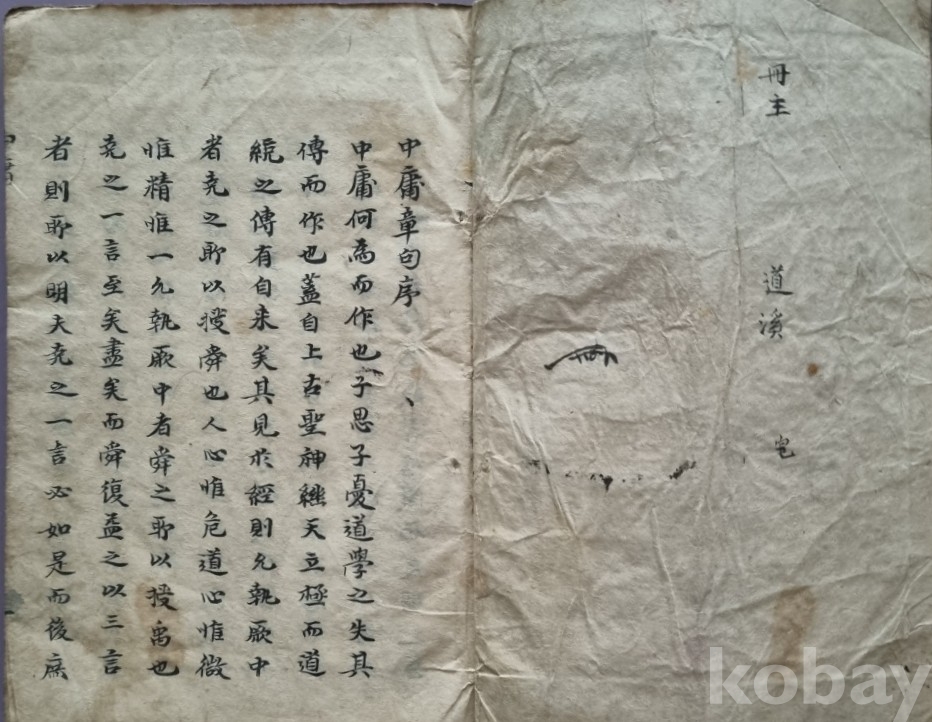 冊主
道溪
中庸章句序
中庸何為而作也子思子憂道學之失其
傳而作也蓋自上古聖神繼天立極而道
統之傳有自来矣其見於經則允執厥中
者堯之所以授舜也人心惟危道心惟微
惟精惟一允執厥中者舜之所以授禹也
堯之一言至矣盡矣而舜復益之以三言
者則所以明夫堯之一言必如是而後庶
kobay